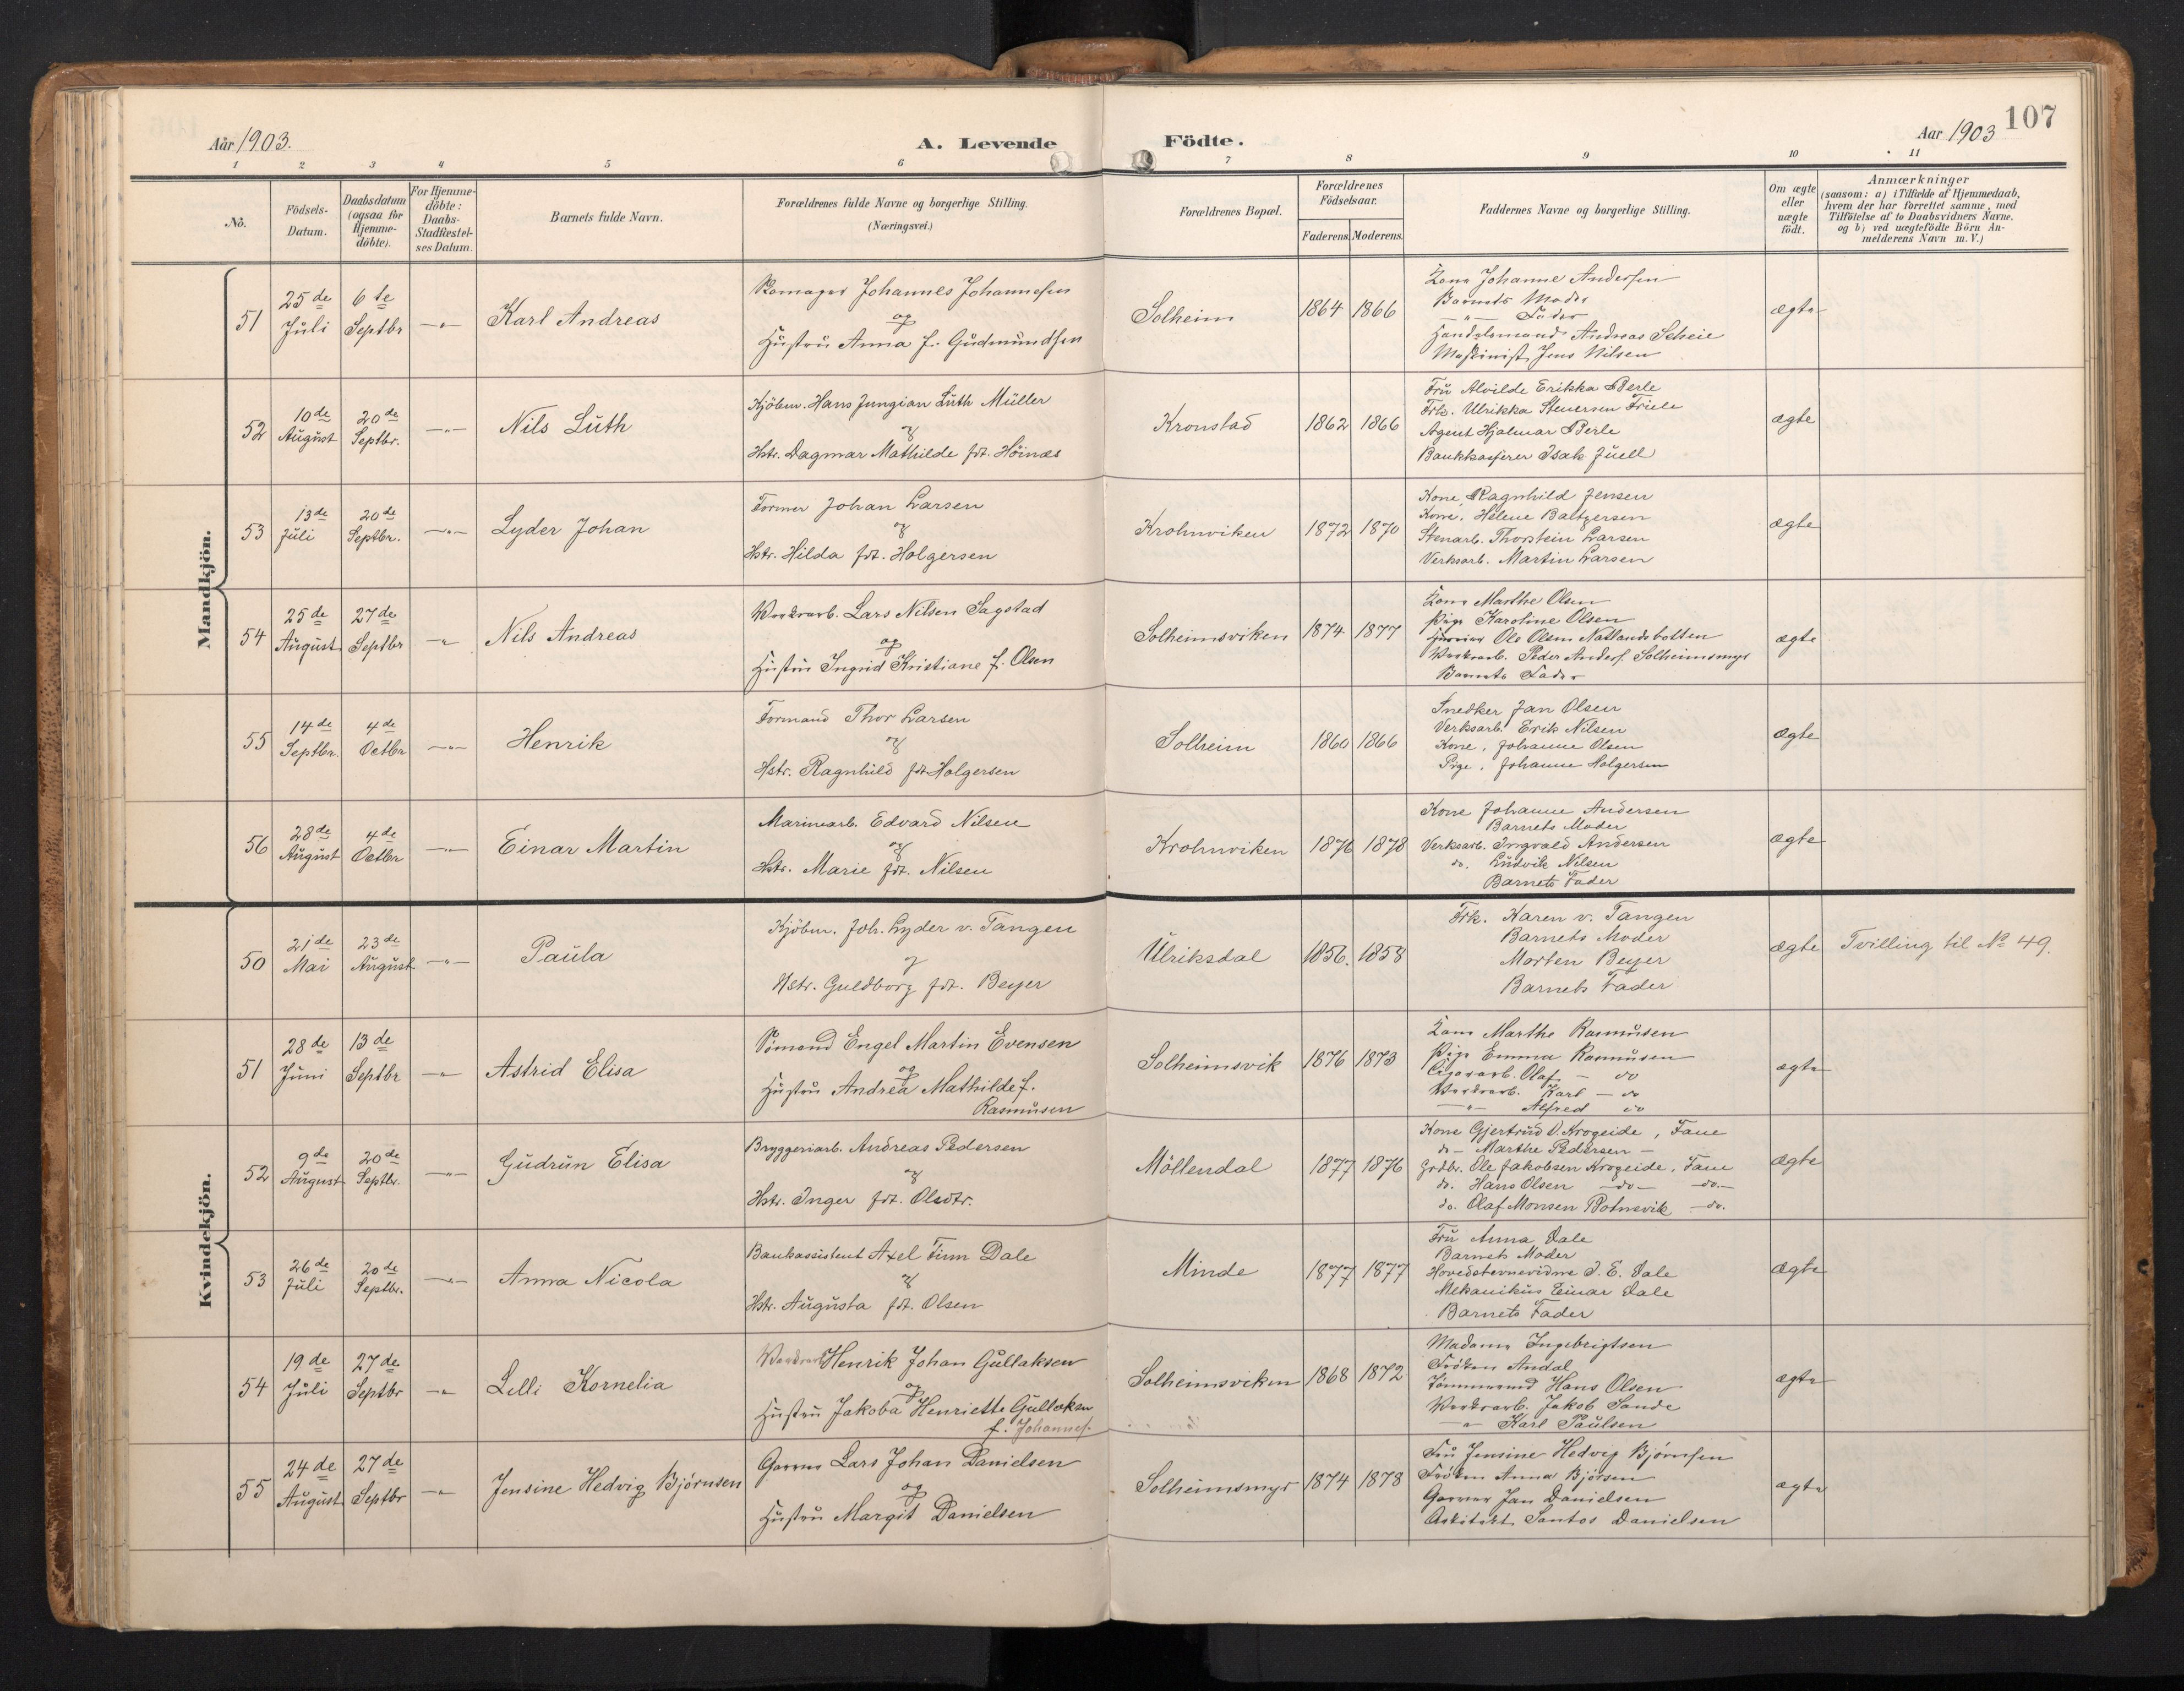 Aar 1903.
A. Levende Födte.
Aar 1903
107
1 2 3 4 5 6 7 8 9 10 11
No.
Födsels-
Datum.
Daabsdatum
(ogsaa for
Hjemme-
döbte).
For Hjemme-
döbte:
Daabs-
Stadfæstel-
ses Datum.
Barnets fulde Navn.
Forældrenes fulde Navne og borgerlige Stilling.
(Næringsvei.)
Forældrenes Bopæl.
Forældrenes
Födselsaar.
Faderens. Moderens.
Faddernes Navne og borgerlige Stilling.
Om ægte
eller
uægte
födt.
Anmærkninger
(saasom: a) i Tilfælde af Hjemmedaab,
hvem der har forrettet samme, med
Tilföielse af to Daabsvidners Navne.
og b) ved uægtefödte Börn An-
melderens Navn m. V.)
Mandkjön.
51
25de
Juli
6te
Septbr
—"—
Karl Andreas
Johannes Johannesen
og
Hustru Anna f. Gudmundsen
Solheim
1864 1866
Kone Johanne Andersen
Barnets Moder
—"— Fader
Handelsmand Andreas Scheie
Maskinist Jens Nilsen
ægte
52
10de
August
20de
Septbr.
—"—
Nils Luth
Kjöbm. Hans Jungian Luth Müller
og
Hstr. Dagmar Mathilde fdt. Höinæs
Kronstad
1862 1866
Fru Alvilde Erikka Perle
Frk. Ulrikka Stenersen Friele
Agent Hjalmar Perle
Bankkasserer Isak Juell
ægte
53
13de
Juli
20de
Septbr.
—"—
Lyder Johan
Former Johan Larsen
og
Hstr. Hilda fdt. Holgersen
Krohnviken
1872 1870
Kone Ragnhild Jensen
Kone, Helene Baltzersen
Stenarb. Thorstein Larsen
Verksarb. Martin Larsen
ægte
54
25de
August
27de
Septbr
—"—
Nils Andreas
Værksarb. Lars Nilsen Sagstad
og
Hustru Ingrid Kristiane f. Olsen
Solheimsviken
1874 1877
Kone Marthe Olsen
Pige Karoline Olsen
Ole Olsen Natlandsbotten
Værksarb. Peder Anders. Solheimsmyr
Barnets Fader
ægte
55
14de
Septbr.
4de
Octbr
—"—
Henrik
Formand Thor Larsen
og
Hstr. Ragnhild fdt. Holgersen
Solheim
1860 1866
Snedker Jan Olsen
Verksarb. Erik Nilsen
Kone, Johanne Olsen
Pige, Johanne Holgersen
ægte
56
28de
August
4de
Octbr
—"—
Einar Martin
Marinearb. Edvard Nilsen
og
Hstr. Marie fdt. Nilsen
Krohnviken
1876 1878
Kone Johanne Andersen
Barnets Moder
Verksarb. Ingvald Andersen
do. Ludvik Nilsen
Barnets Fader
ægte
Kvindekjön.
50
21de
Mai
23de
August
—"—
Paula
Kjöbm. Joh. Lyder v. Tangen
og
Hstr. Guldborg fdt. Beyer
Ulriksdal
1856. 1858
Frk. Karen v. Tangen
Barnets Moder
Morten Beyer
Barnets Fader
ægte
Tvilling til No 49.
51
28de
Juni
13de
Septbr
—"—
Astrid Elisa
Sömand Engel Martin Evensen
og
Hustru Andrea Mathilde f.
Rasmusen
Solheimsvik
1876 1873
Kone Marthe Rasmusen
Pige Emma Rasmusen
Cigararb. Olaf — do
Værksarb. Karl — do
—"— Alfred do
ægte
52
9de
August
20de
Septbr.
—"—
Gudrun Elisa
Bryggeriarb. Andreas Pedersen
og
Hstr. Inger fdt. Olsdtr.
Möllendal
1877 1876
Kone Gjertrud O. Krogeide, Fane
do — Marthe Pedersen —
Grdbr. Ole Jakobsen Krogeide, Fane
do. Hans Olsen —do— —do.—
do. Olaf Monsen Botnevik —do.
ægte
53
26de
Juli
20de
Septbr.
—"—
Anna Nicola
Bankassistent Axel Finn Dale
og
Hstr. Augusta fdt. Olsen
Minde
1877 1877
Fru Anna Dale
Barnets Moder
Hovedstevnevidne I. E. Dale
Mekanikus Einar Dale
Barnets Fader
ægte
54
19de
Juli
27de
Septbr
—"—
Lelli Kornelia
Værksarb Henrik Johan Gullaksen
og
Hustru Jakoba Henriette Gullaksen
f. Johannes.
Solheimsviken
1868 1872
Madame Ingebrigtsen
Fröken Andal
Tömmermand Hans Olsen
Værksarb. Jakob Sande
—"— Karl Paulsen
ægte
55
24de
August
27de
Septbr
—"—
Jensine Hedvig Björnsen
Garver Lars Johan Danielsen
og
Hustru Margit Danielsen
Solheimsmyr
1874 1878
Fru Jensine Hedvig Björnsen
Fröken Anna Björsen
Garver Jan Danielsen
Arkitekt Santos Danielsen
ægte